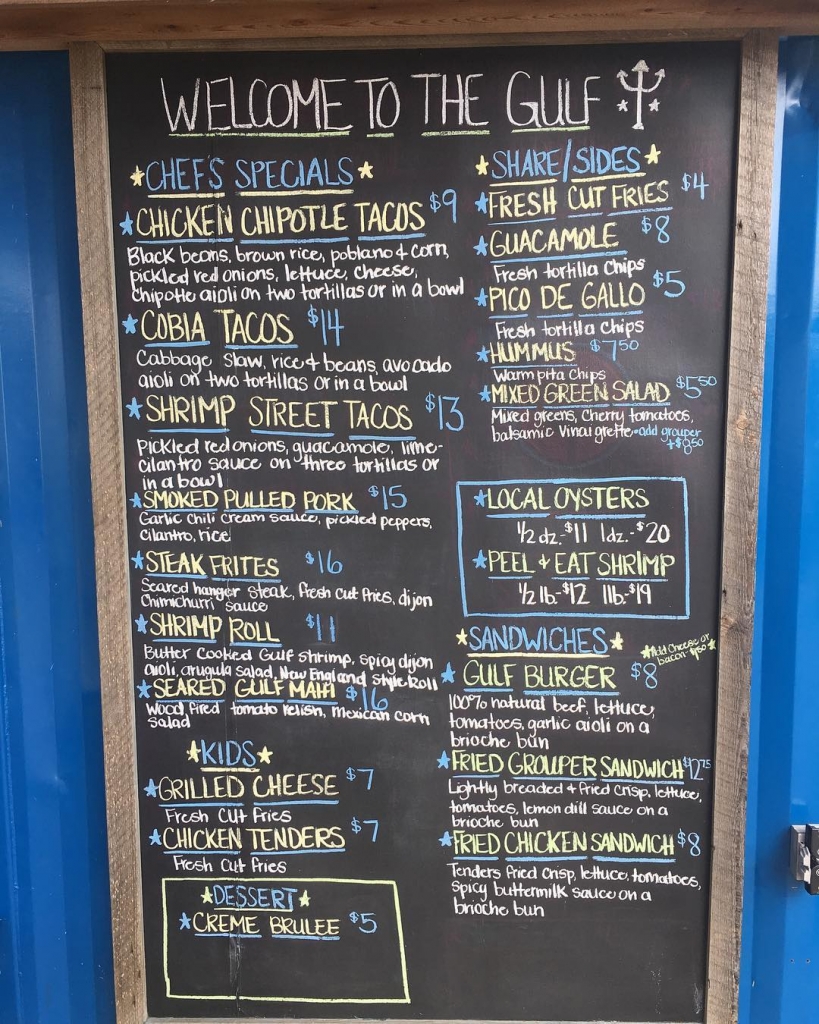 WELCOME TO THE GULF
CHEF'S SPECIALS
CHICKEN CHIPOTLE TACOS $9
Black beans, brown rice, poblano & corn,
pickled red onions, lettuce, cheese,
chipotle aioli on two tortillas or in a bowl
COBIA TACOS $14
Cabbage slaw, rice & beans, avocado
aioli on two tortillas or in a bowl
SHRIMP STREET TACOS $13
Pickled red onions, guacamole, lime-
cilantro sauce on three tortillas or
in a bowl
SMOKED PULLED PORK $15
Garlic chili cream sauce, pickled peppers,
cilantro, rice
STEAK FRITES $16
Seared hanger steak, fresh cut fries, dijon
chimichurri sauce
SHRIMP ROLL $11
Butter cooked Gulf shrimp, spicy dijon
aioli, arugula salad, New England style Roll
SEARED GULF MAHI $16
Wood fired tomato relish, mexican corn
salad
KIDS
GRILLED CHEESE $7
Fresh cut fries
CHICKEN TENDERS $7
Fresh cut fries
DESSERT
CREME BRULEE $5
SHARE/SIDES
FRESH CUT FRIES $4
GUACAMOLE $8
Fresh tortilla chips
PICO DE GALLO $5
Fresh tortilla chips
HUMMUS $7.50
Warm pita chips
MIXED GREEN SALAD $5.50
Mixed greens, cherry tomatoes,
balsamic vinaigrette - add grouper
+$8.50
LOCAL OYSTERS
1/2 dz.-$11 1dz.-$20
PEEL & EAT SHRIMP
1/2 lb-$12 1lb-$19
SANDWICHES
Add cheese or
bacon $1.50
GULF BURGER $8
100% natural beef, lettuce,
tomatoes, garlic aioli on a
brioche bun
FRIED GROUPER SANDWICH $12.75
Lightly breaded & fried crisp, lettuce,
tomatoes, lemon dill sauce on a
brioche bun
FRIED CHICKEN SANDWICH $8
Tenders fried crisp, lettuce, tomatoes,
spicy buttermilk sauce on a
brioche bun